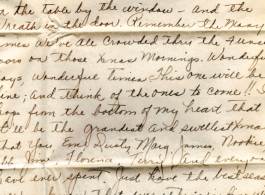 the table by the window - and the
Wreath in the door. Remember the Many
times we've all Crowded thru the
doors on those Xmas Mornings. Wonderful
days, Wonderful times. This one will be
fine; and think of the ones to come!! I
hope from the bottom of my heart that
it'll be the grandest and swellest Xmas
that you, Em, Dusty, Mary, James, Rookie,
Florence, Terry, and everyone
ever spent. Just have the best
That